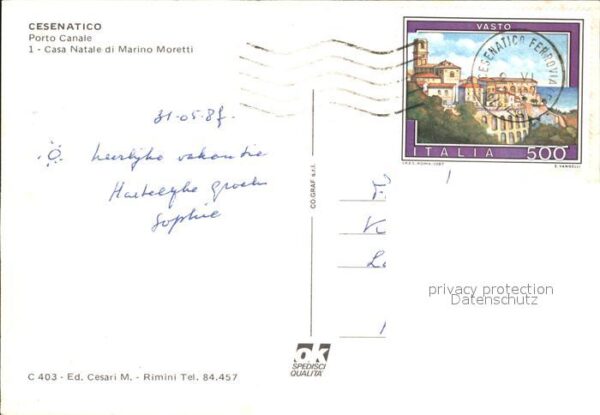 CESENATICO
Porto Canale
1 - Casa Natale di Marino Moretti
VASTO
CESENATICO FERROVIA
ITALIA 500
I.P.Z.S. ROMA - 1987
E. VANGELLI
31-05-87
heerlijke vakantie
Hartelijke groeten
Sophie
CO.GRAF s.r.l.
privacy protection
Datenschutz
ok
SPEDISCI
QUALITA'
C 403 - Ed. Cesari M. - Rimini Tel. 84.457